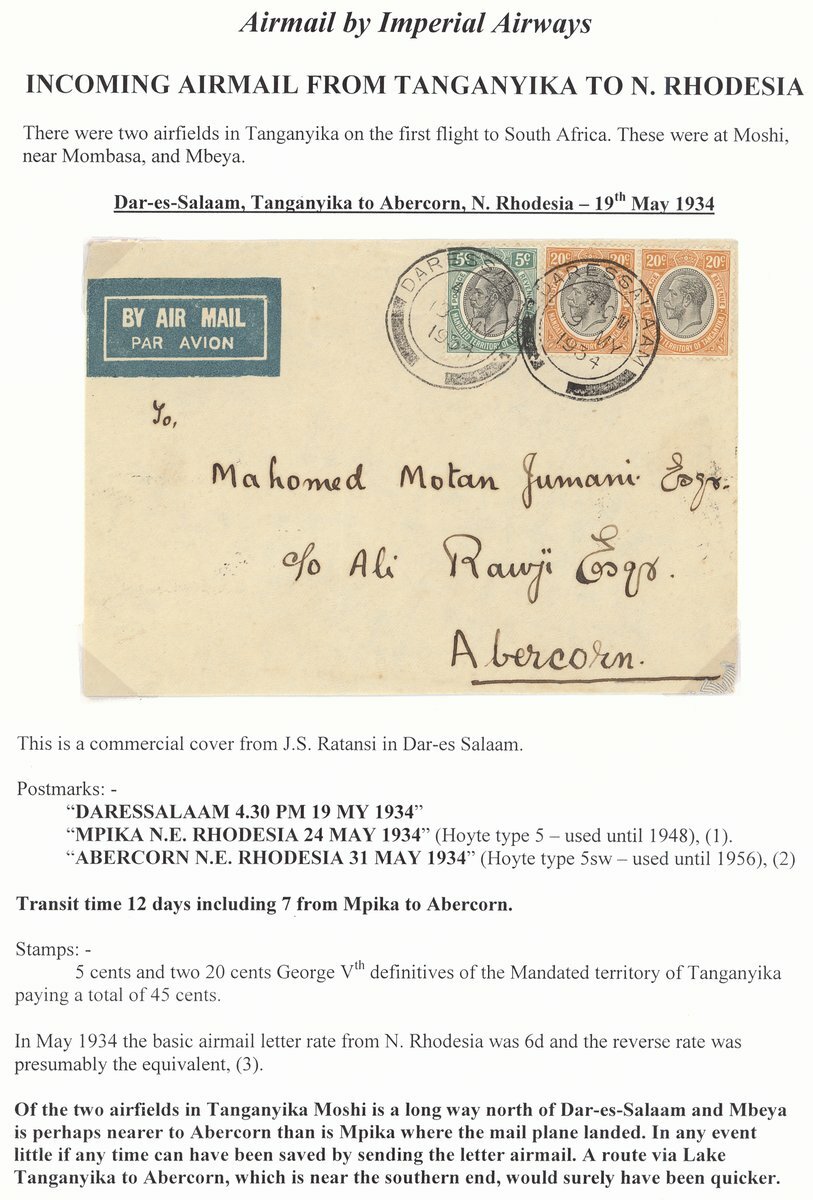 Airmail by Imperial Airways
INCOMING AIRMAIL FROM TANGANYIKA TO N. RHODESIA
There were two airfields in Tanganyika on the first flight to South Africa. These were at Moshi,
near Mombasa, and Mbeya.
Dar-es-Salaam, Tanganyika to Abercorn, N. Rhodesia – 19th May 1934
BY AIR MAIL
PAR AVION
5c 5c
20c 20c
20c 20c
MANDATED TERRITORY OF TANGANYIKA
DARESSALAAM
MY
1934
DARESSALAAM
1934
To,
Mahomed Motan Jumani Esqr.
c/o Ali Rawji Esqr.
Abercorn.
This is a commercial cover from J.S. Ratansi in Dar-es Salaam.
Postmarks: -
“DARESSALAAM 4.30 PM 19 MY 1934”
“MPIKA N.E. RHODESIA 24 MAY 1934” (Hoyte type 5 – used until 1948), (1).
“ABERCORN N.E. RHODESIA 31 MAY 1934” (Hoyte type 5sw – used until 1956), (2)
Transit time 12 days including 7 from Mpika to Abercorn.
Stamps: -
5 cents and two 20 cents George Vth definitives of the Mandated territory of Tanganyika
paying a total of 45 cents.
In May 1934 the basic airmail letter rate from N. Rhodesia was 6d and the reverse rate was
presumably the equivalent, (3).
Of the two airfields in Tanganyika Moshi is a long way north of Dar-es-Salaam and Mbeya
is perhaps nearer to Abercorn than is Mpika where the mail plane landed. In any event
little if any time can have been saved by sending the letter airmail. A route via Lake
Tanganyika to Abercorn, which is near the southern end, would surely have been quicker.